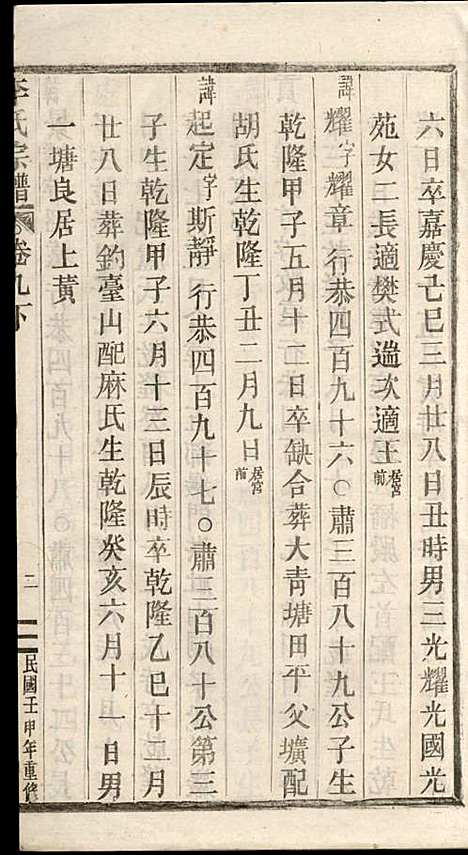 六日卒嘉慶己巳三月廿八日丑時男三光耀光國光
苑女二長適樊式過次適王居宮前
諱耀字耀章行恭四百九十六〇肅三百八十九公子生
乾隆甲子五月十一日卒缺合葬大青塘田平父壙配
胡氏生乾隆丁丑二月九日居宮前
諱起定字斯靜行恭四百九十七〇肅三百八十公第三
子生乾隆甲子六月十三日辰時卒乾隆乙巳十二月
廿八日葬釣臺山配麻氏生乾隆癸亥六月十一日男
一塘良居上黃
李氏宗譜 卷九下 二 民國壬申年重修